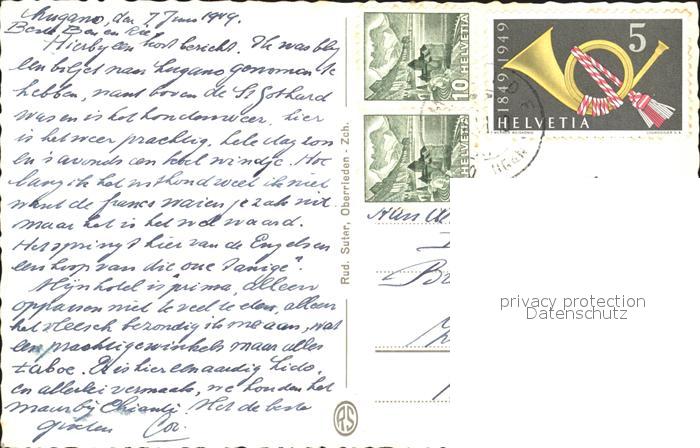 Lugano, den 7 Juni 1949.
Beste Ben en
Hierbij een kort bericht. Ik was blij
een biljet naar Lugano genomen te
hebben, want boven de St Gothard
was en is het hondenweer, hier
is het weer prachtig, hele dag zon
en 's avonds een koel windje. Hoe
lang ik het uithoud weet ik niet
want de francs waaien je zak uit
maar het is het wel waard.
Het springt hier van de Engelsen
een hoop van die one Tanige".
Mijn hotel is prima, alleen
oppassen niet te veel te eten, alleen
het vleesch bezondig ik me aan, wat
een prachtige winkels maar alles
taboe. Er is hier een aardig Lido,
en allerlei vermaak, we houden het
maar bij Chianti. Met de beste
groeten Cor.
Rud. Suter, Oberrieden - Zch.
RS
10 HELVETIA
HELVETIA
1849-1949
5
HELVETIA
privacy protection
Datenschutz